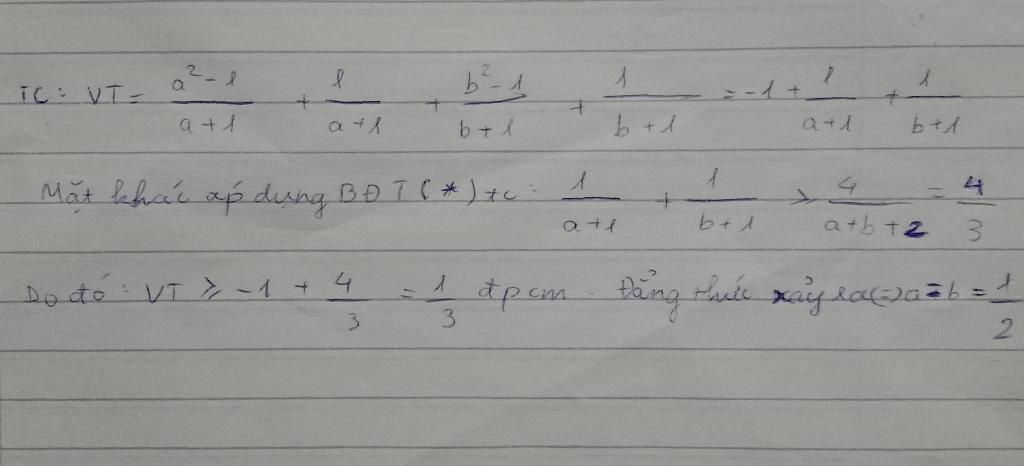 TC: VT = a²-1/a+1 + 1/a+1 + b²-1/b+1 + 1/b+1 = -1 + 1/a+1 + 1/b+1
Mặt khác áp dụng BĐT (*) tc: 1/a+1 + 1/b+1 ≥ 4/a+b+2 = 4/3
Do đó: VT ≥ -1 + 4/3 = 1/3 đpcm. Đẳng thức xảy ra (=) a=b = 1/2